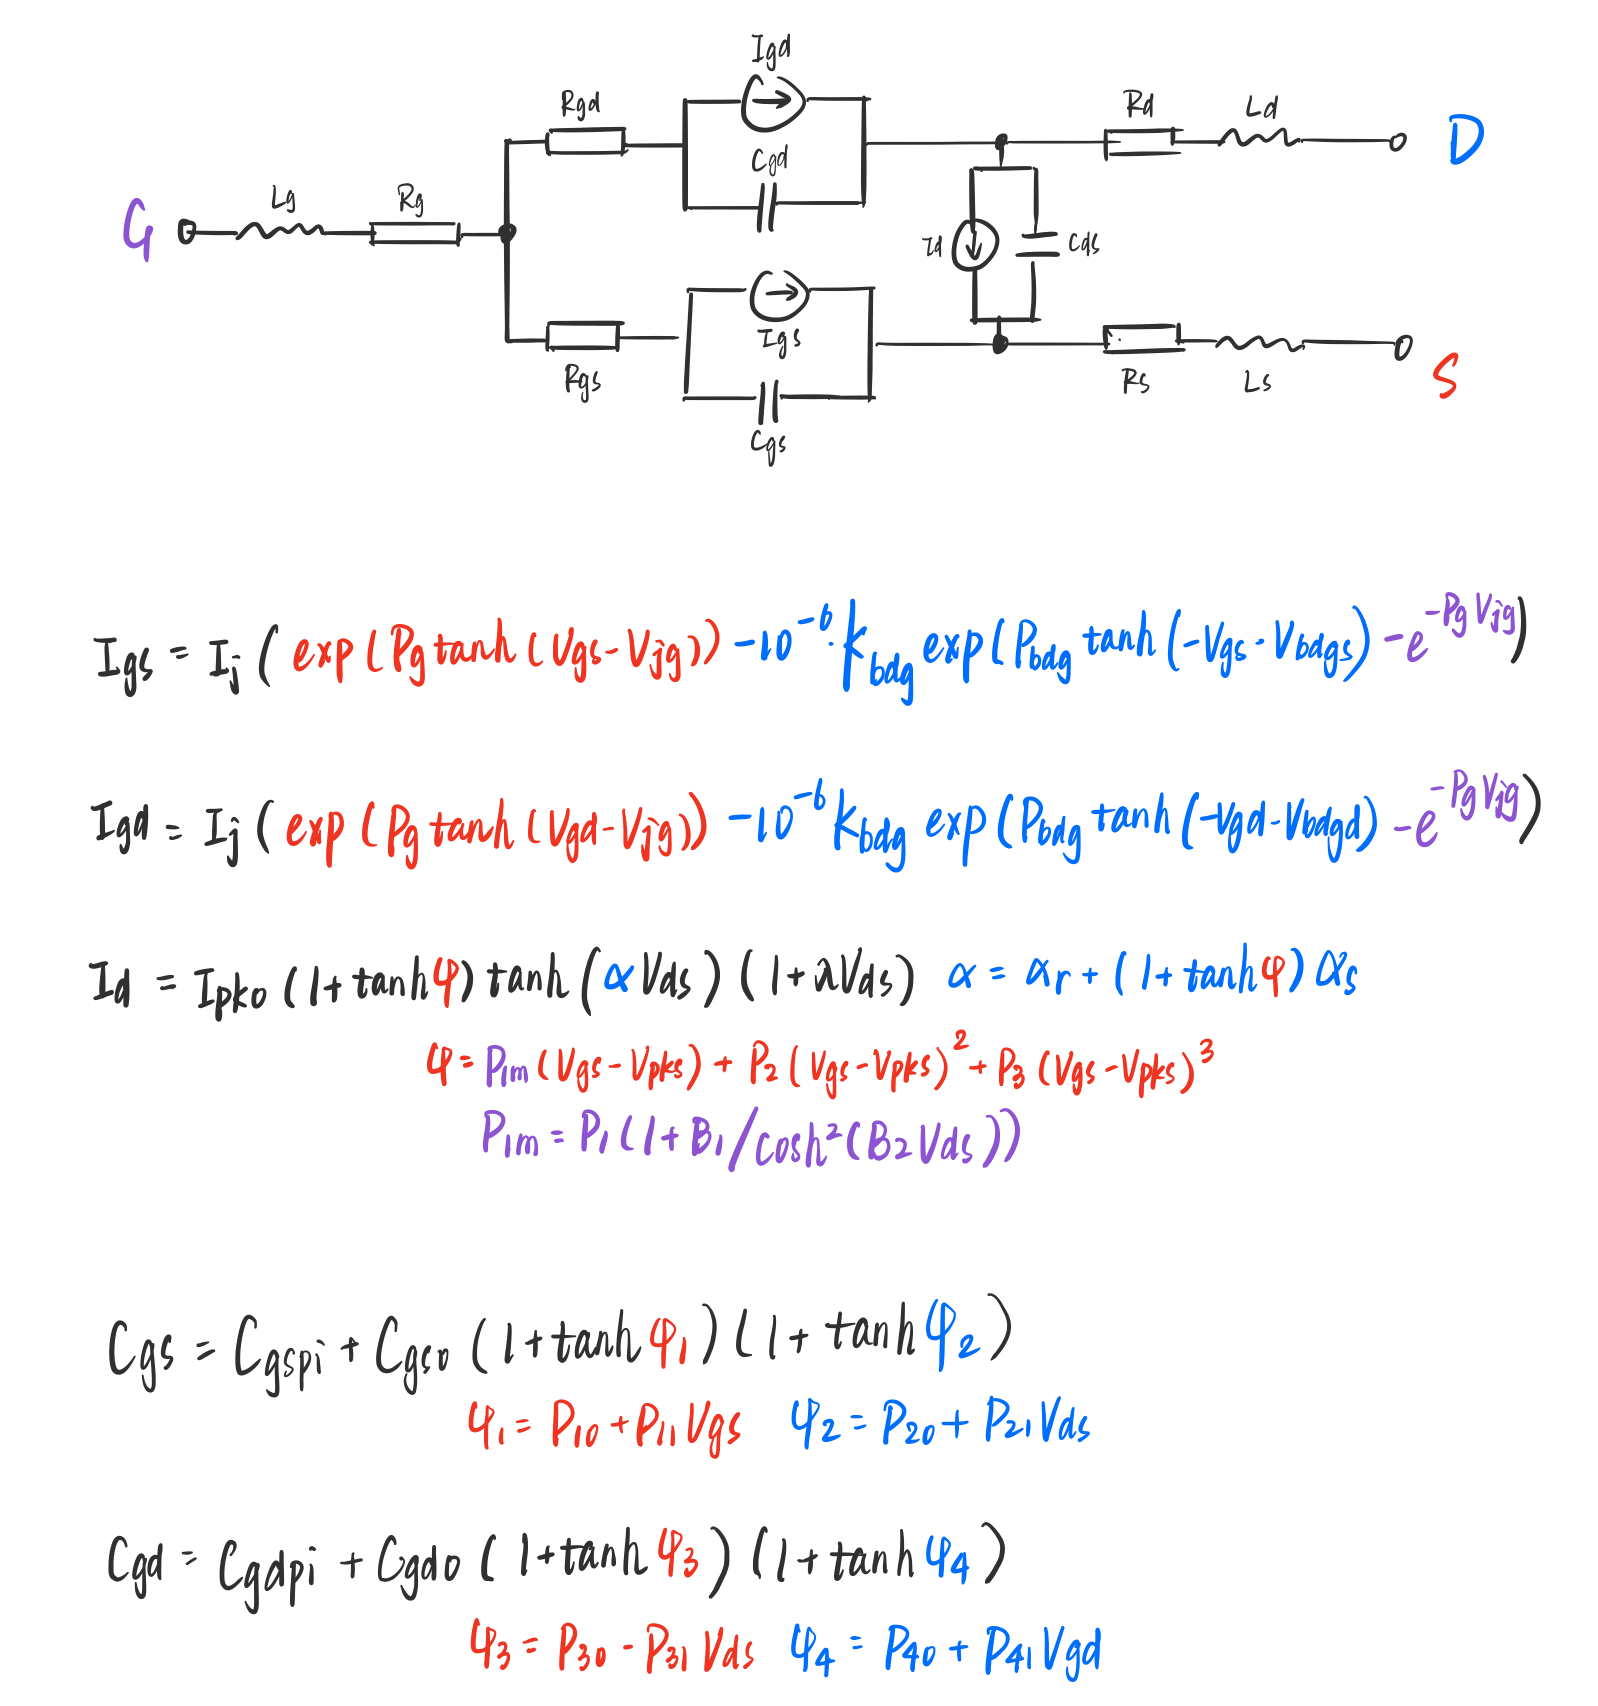 Igd
Rgd
Cgd
Rd
Ld
D
G
Lg
Rg
Id
Cds
Igs
Rgs
Cgs
Rs
Ls
S
Igs = Ij ( exp ( Pg tanh ( Vgs - Vjg ) ) - 10^-6 · Kbdg exp ( Pbdg tanh ( -Vgs - Vbdgs ) - e^-Pg Vjg )
Igd = Ij ( exp ( Pg tanh ( Vgd - Vjg ) ) - 10^-6 Kbdg exp ( Pbdg tanh ( -Vgd - Vbdgd ) - e^-Pg Vjg )
Id = Ipko ( 1 + tanh φ ) tanh ( α Vds ) ( 1 + λVds ) α = αr + ( 1 + tanh φ ) αs
φ = P1m ( Vgs - Vpks ) + P2 ( Vgs - Vpks )^2 + P3 ( Vgs - Vpks )^3
P1m = P1 ( 1 + B1 / cosh^2 ( B2 Vds ) )
Cgs = Cgspi + Cgso ( 1 + tanh φ1 ) ( 1 + tanh φ2 )
φ1 = P10 + P11 Vgs φ2 = P20 + P21 Vds
Cgd = Cgdpi + Cgdo ( 1 + tanh φ3 ) ( 1 + tanh φ4 )
φ3 = P30 - P31 Vds φ4 = P40 + P41 Vgd